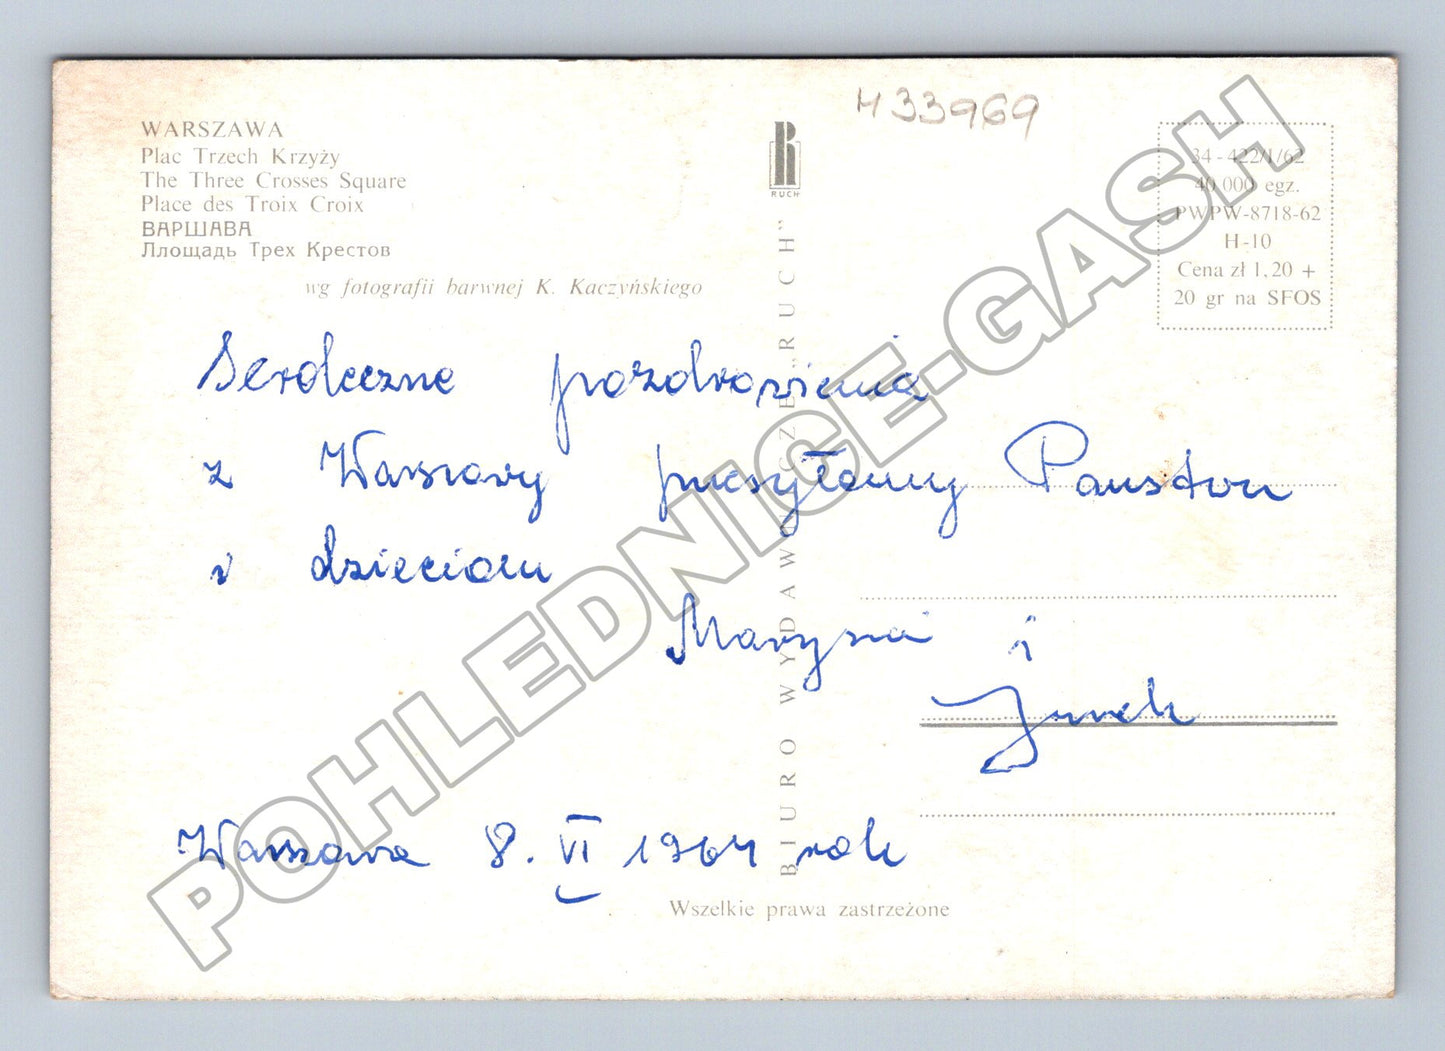 WARSZAWA
Plac Trzech Krzyży
The Three Crosses Square
Place des Troix Croix
ВАРШАВА
Площадь Трех Крестов
wg fotografii barwnej K. Kaczyńskiego
H33969
RUCH
34 - 422/1/62
40 000 egz.
PWPW-8718-62
H-10
Cena zł 1,20 +
20 gr na SFOS
BIURO WYDAWNICZE „RUCH"
Serdeczne pozdrowienia
z Warszawy przesyłamy Państwu
i dzieciom
Marysia i
Jurek
Warszawa 8. VI 1964 rok
Wszelkie prawa zastrzeżone
POHLEDNICE-GASH